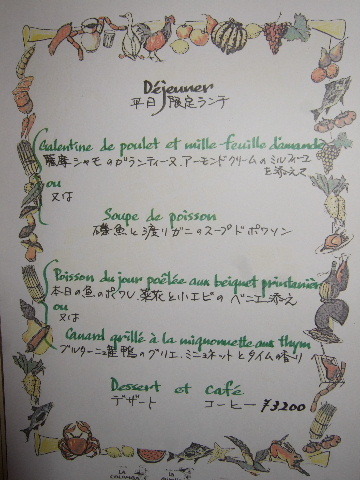 Déjeuner
平日限定ランチ
Galentine de poulet et mille-feuille d'amande
薩摩シャモのガランティーヌ、アーモンドクリームのミルフィーユ
を添えて
ou
又は
Soupe de poisson
磯魚と渡りガニのスープ ド ポワソン
Poisson du jour poêlée aux beignet printanier
本日の魚のポワレ、菜花と小エビのベニエ添え
ou
又は
Canard grillé à la mignonnette aux thym
ブルターニュ産鴨のグリエ、ミニョネットとタイムの香り
Dessert et café
デザート コーヒー ¥3,200